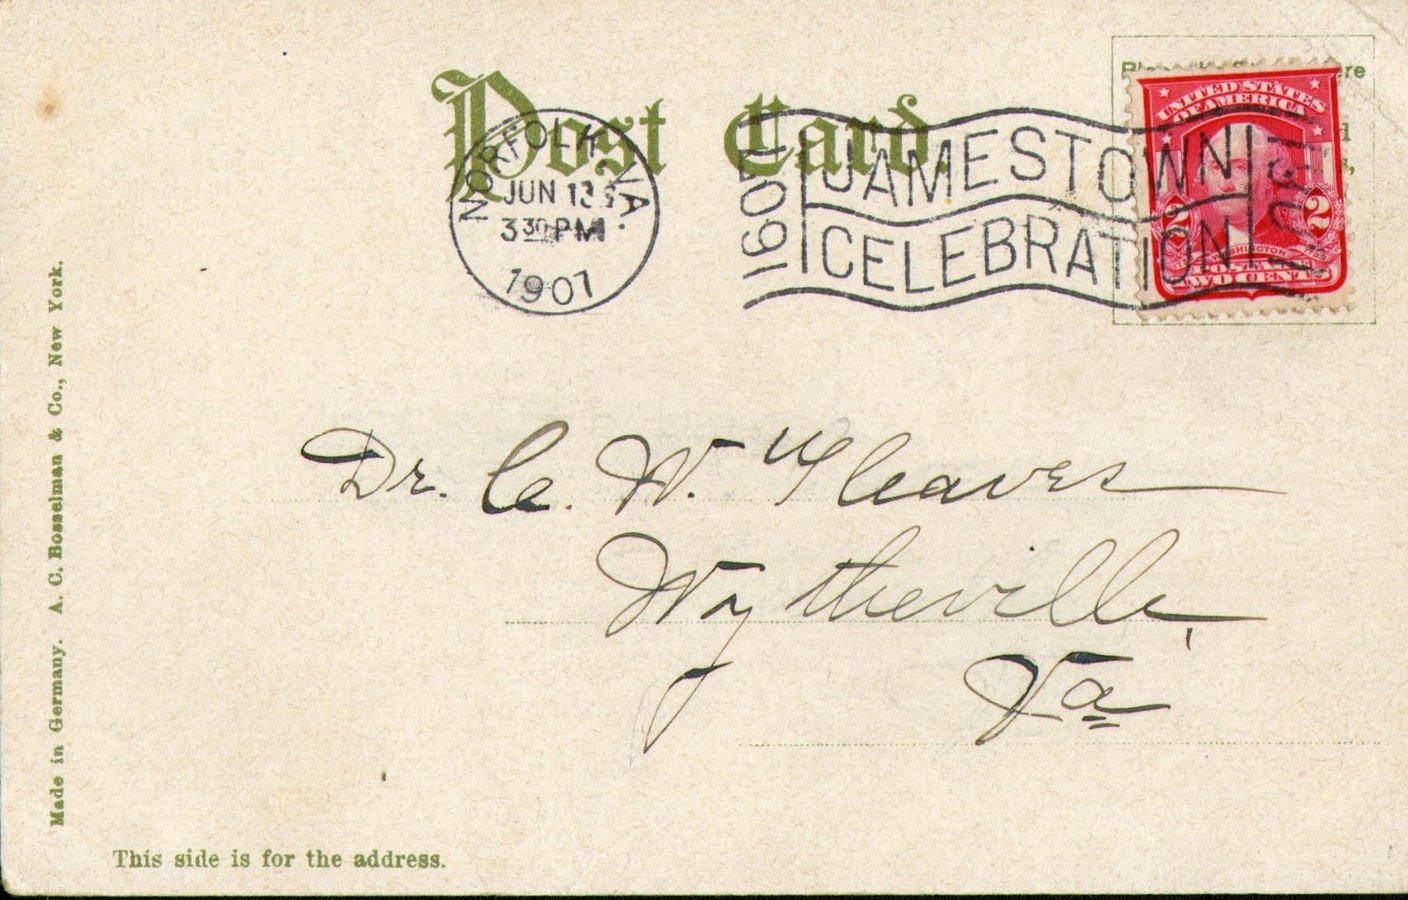 Post Card.
NORFOLK VA.
JUN 13
3 30 PM
1907
1607 JAMESTOWN 1907
CELEBRATION
UNITED STATES
OF AMERICA
2 2
WASHINGTON
POSTAGE
TWO CENTS
Dr. C. W. Gleaves
Wytheville,
Va
Made in Germany. A. C. Bosselman & Co., New York.
This side is for the address.